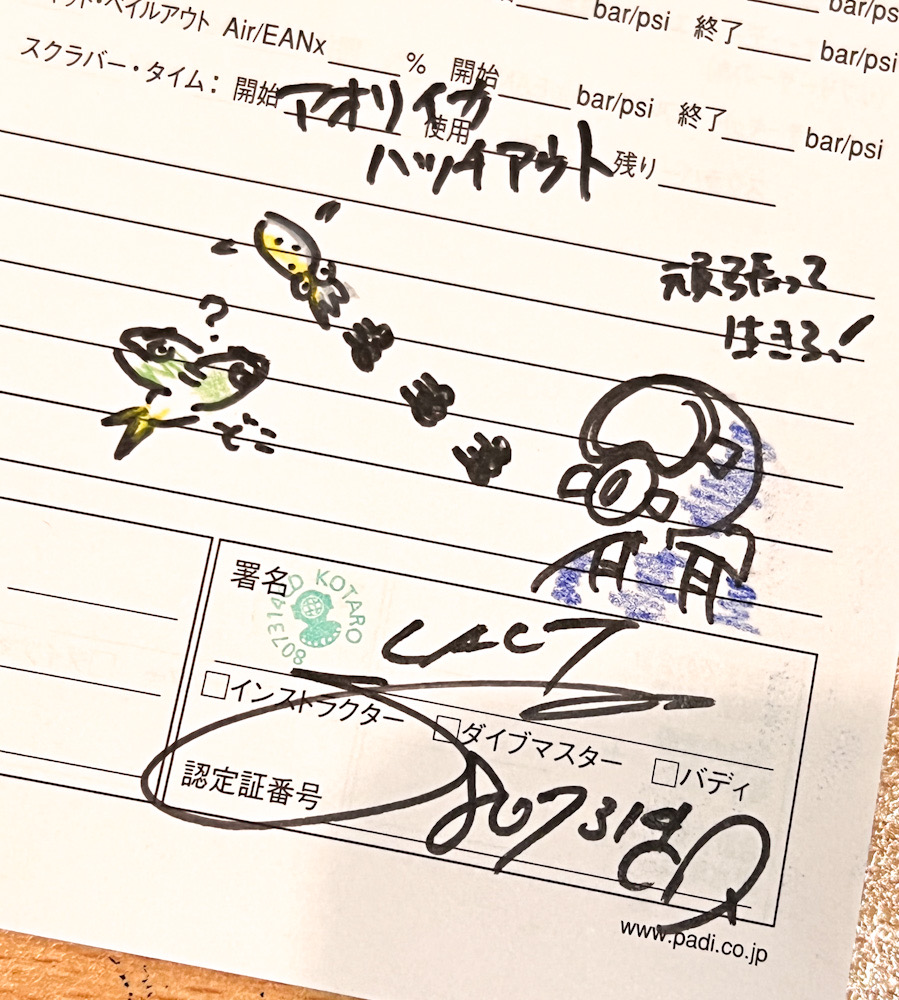 bar/psi
bar/psi 終了 bar/psi
ベイルアウト Air/EANx % 開始 bar/psi 終了 bar/psi
スクラバー・タイム： 開始 使用 残り
アオリイカ
ハッチアウト
頑張って
生きろ!
?
どこ
署名
KOTARO
インストラクター ダイブマスター バディ
認定証番号
807319
www.padi.co.jp